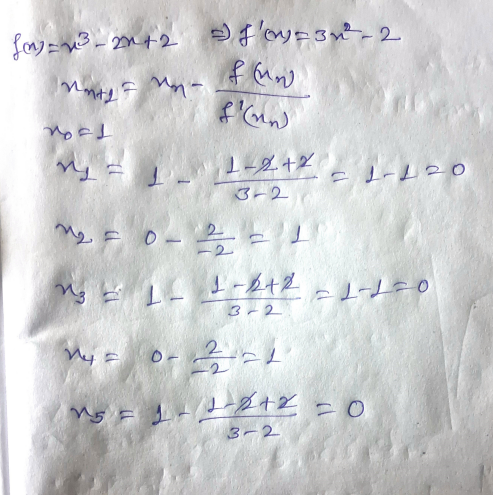 f(x) = x³ - 2x + 2 ⇒ f'(x) = 3x² - 2
xₙ₊₁ = xₙ - f(xₙ) / f'(xₙ)
x₀ = 1
x₁ = 1 - (1 - 2 + 2) / (3 - 2) = 1 - 1 = 0
x₂ = 0 - 2 / -2 = 1
x₃ = 1 - (1 - 2 + 2) / (3 - 2) = 1 - 1 = 0
x₄ = 0 - 2 / -2 = 1
x₅ = 1 - (1 - 2 + 2) / (3 - 2) = 0